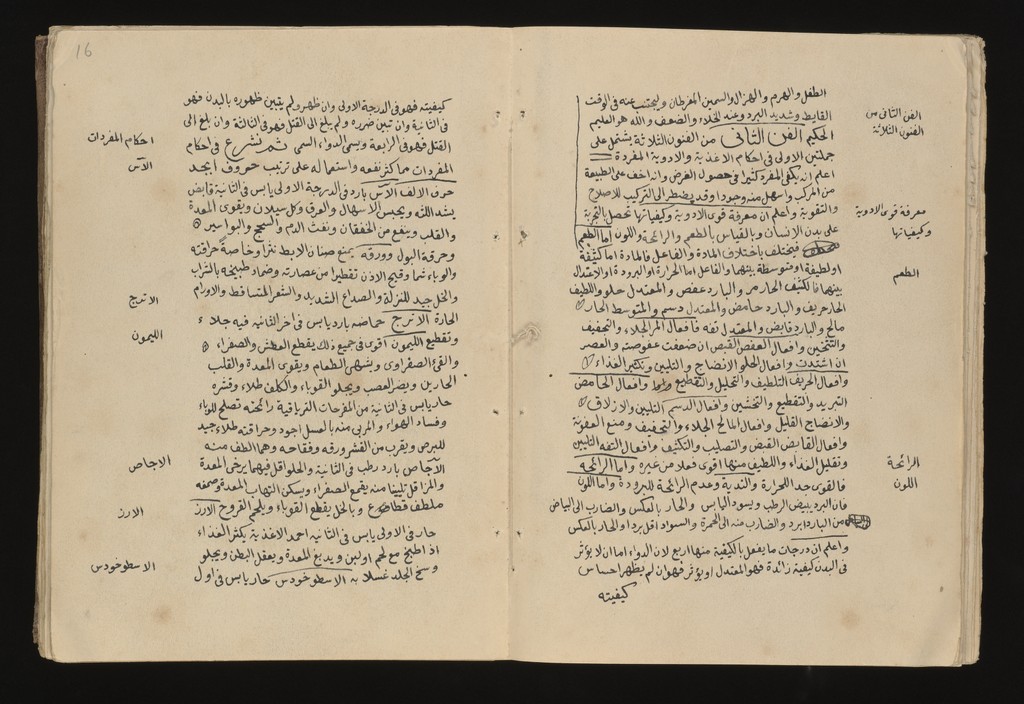 الطفل والهرم والهزال والسمين المفرطان وليجتنب عنه فى الوقت
القايظ وشديد البرد وعند الخلاء والضعف والله هو العليم
الحكيم الفن الثانى من الفنون الثلاثة يشتمل على
جملتين الاولى فى احكام الاغذية والادوية المفردة
اعلم انه يكفى المفرد كثيرا فى حصول الغرض وانه اخف على الطبيعة
من المركب واسهل منه وجودا وقد يضطر الى التركيب للاصلاح
والتقوية واعلم ان معرفة قوى الادوية وكيفياتها تحصل بالتجربة
على بدن الانسان وبالقياس بالطعم والرائحة واللون اما الطعم
فيختلف باختلاف المادة والفاعل فالمادة اما كثيفة
او لطيفة او متوسطة بينهما والفاعل اما الحرارة او البرودة او الاعتدال
بينهما فالكثيف الحار مر والبارد عفص والمعتدل حلو واللطيف
الحار حريف والبارد حامض والمعتدل دسم والمتوسط الحار
مالح والبارد قابض والمعتدل تفه فافعال المر الجلاء والتجفيف
والتسخين وافعال العفص القبض ان ضعفت عفوصته والعصر
ان اشتدت وافعال الحلو الانضاج والتليين وتكثير الغذاء
وافعال الحريف التلطيف والتحليل والتقطيع وافعال الحامض
التبريد والتقطيع والتخشين وافعال الدسم التليين والازلاق
والانضاج القليل وافعال المالح الجلاء والتجفيف ومنع العفونة
وافعال القابض القبض والتصليب والتكثيف وافعال التفه التليين
وتقليل الغذاء واللطيف منها اقوى فعلا من غيره واما الرائحة
فالقوى حد للحرارة والندية وعدم الرائحة للبرودة واما اللون
فان البرد يبيض الرطب ويسود اليابس والحار بالعكس والضارب الى البياض
من البارد ابرد والضارب منه الى الحمرة والسواد اقل بردا والحار بالعكس
واعلم ان درجات ما يفعل بالكيفية منها اربع لان الدواء اما ان لا يؤثر
فى البدن كيفية زائدة فهو المعتدل او يؤثر فهو ان لم يظهر احساس
كيفيته
الفن الثانى من
الفنون الثلاثة
معرفة قوى الادوية
وكيفياتها
الطعم
الرائحة
اللون
16
كيفيته فهو فى الدرجة الاولى وان ظهر ولم يتبين ظهوره بالبدن فهو
فى الثانية وان تبين ضرره ولم يبلغ الى القتل فهو فى الثالثة وان بلغ الى
القتل فهو فى الرابعة ويسمى الدواء السمى ثم نشرع فى احكام
المفردات مما كثر نفعه واستعماله على ترتيب حروف ابجد
حرف الالف الآس بارد فى الدرجة الاولى يابس فى الثانية قابض
يشد اللثه ويحبس الاسهال والعرق وكل سيلان ويقوى المعدة
والقلب وينفع من الخفقان ونفث الدم والسحج والبواسير
وحرقة البول وورقه يمنع صنان الابط نثرا وخاصة حراقته
والوباء شما وقيح الاذن تقطيرا من عصارته وضماد طبيخه بالشراب
والخل جيد للنزلة والصداع الشديد والشعر المتساقط والاورام
الحارة الاترج حماضه بارد يابس فى اخر الثانيه فيه جلاء
وتقطيع الليمون اقوى فى جميع ذلك يقطع العطش والصفراء
والقئ الصفراوى ويشهى الطعام ويقوى المعدة والقلب
الحارين ويضر العصب ويجلو القوباء والكلف طلاء وقشره
حار يابس فى الثانية من المفرحات الترياقية رائحته تصلح للوباء
وفساد الهواء والمربى منه بالعسل اجود وحراقته طلاء جيد
للبرص ويقرب من القشر ورقه وفقاحه وهما الطف منه
الآجاص بارد رطب فى الثانية والحلو اقل فيهما يرخى المعدة
والمز اقل تليينا منه يقمع الصفراء ويسكن التهاب المعدة وصمغه
ملطف قطاع وبالخل يقطع القوباء ويلحم القروح الارز
حار فى الاولى يابس فى الثانيه احمد الاغذية يكثر الغذاء
اذ اطبخ مع لحم اولبن ويدبغ المعدة ويعقل البطن ويجلو
وسخ الجلد غسلا به الاسطوخودس حار يابس فى اول
احكام المفردات
الآس
الاترج
الليمون
الاجاص
الارز
الاسطوخودس